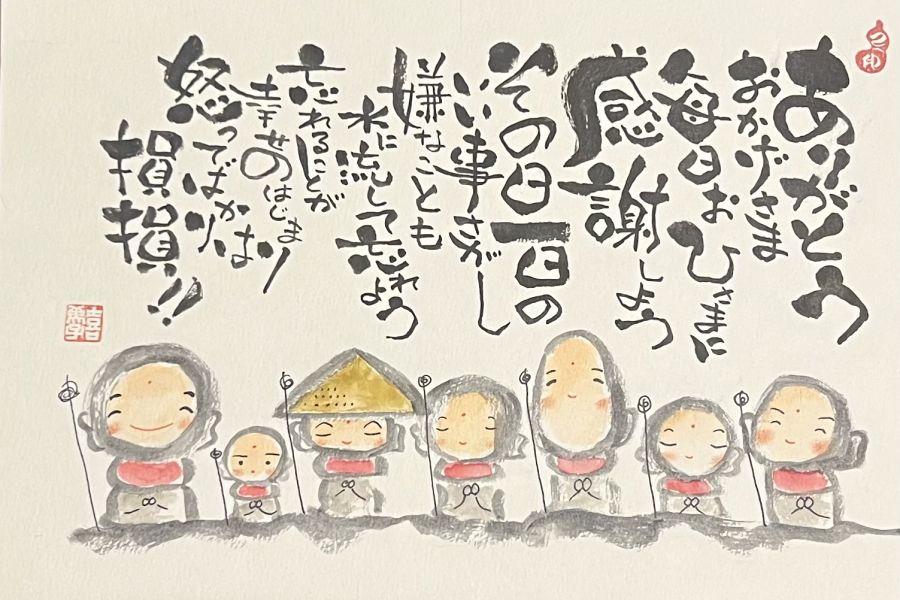 ありがとう
おかげさま
毎日おひさまに
感謝しよう
その日一日の
いい事さがし
嫌なことも
水に流して忘れよう
忘れることが
幸せのはじまり
怒ってばかりは
損損!!